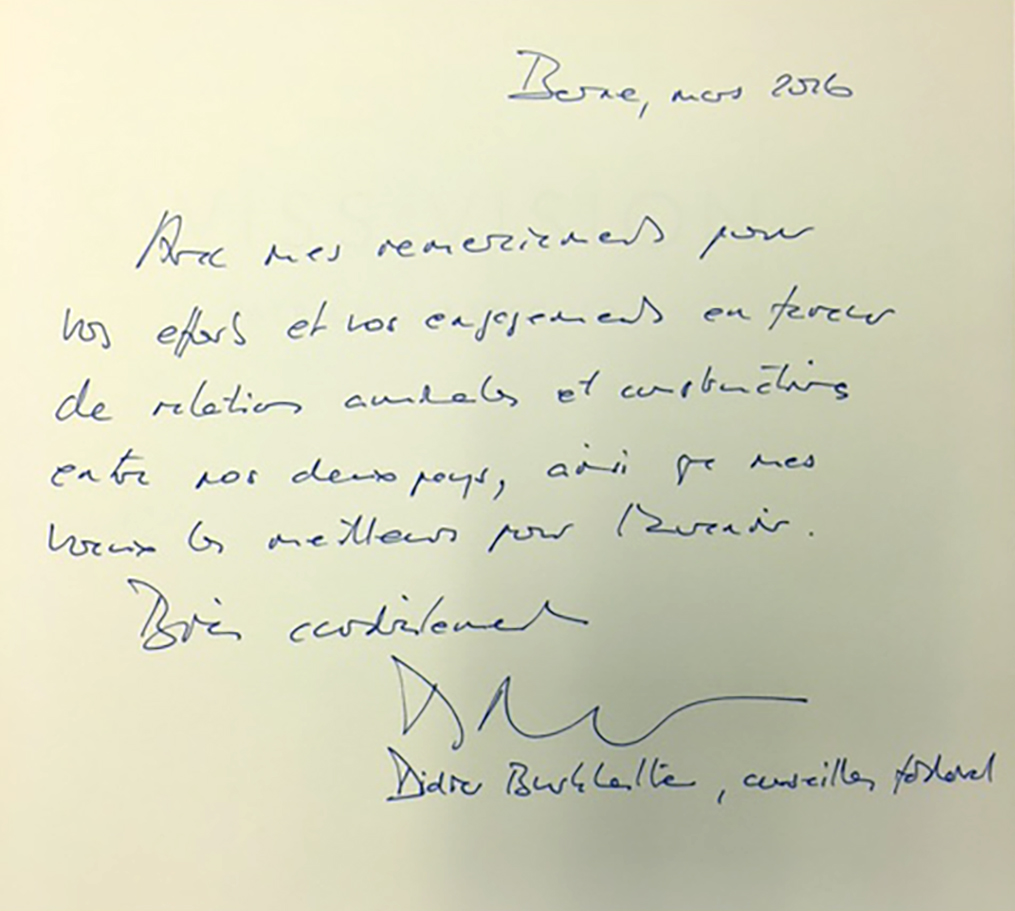 Berne, mars 2016
Avec mes remerciements pour
vos efforts et vos engagements en faveur
de relations amicales et constructives
entre nos deux pays, ainsi que mes
voeux les meilleurs pour l'avenir.
Bien cordialement
Didier Burkhalter, conseiller fédéral